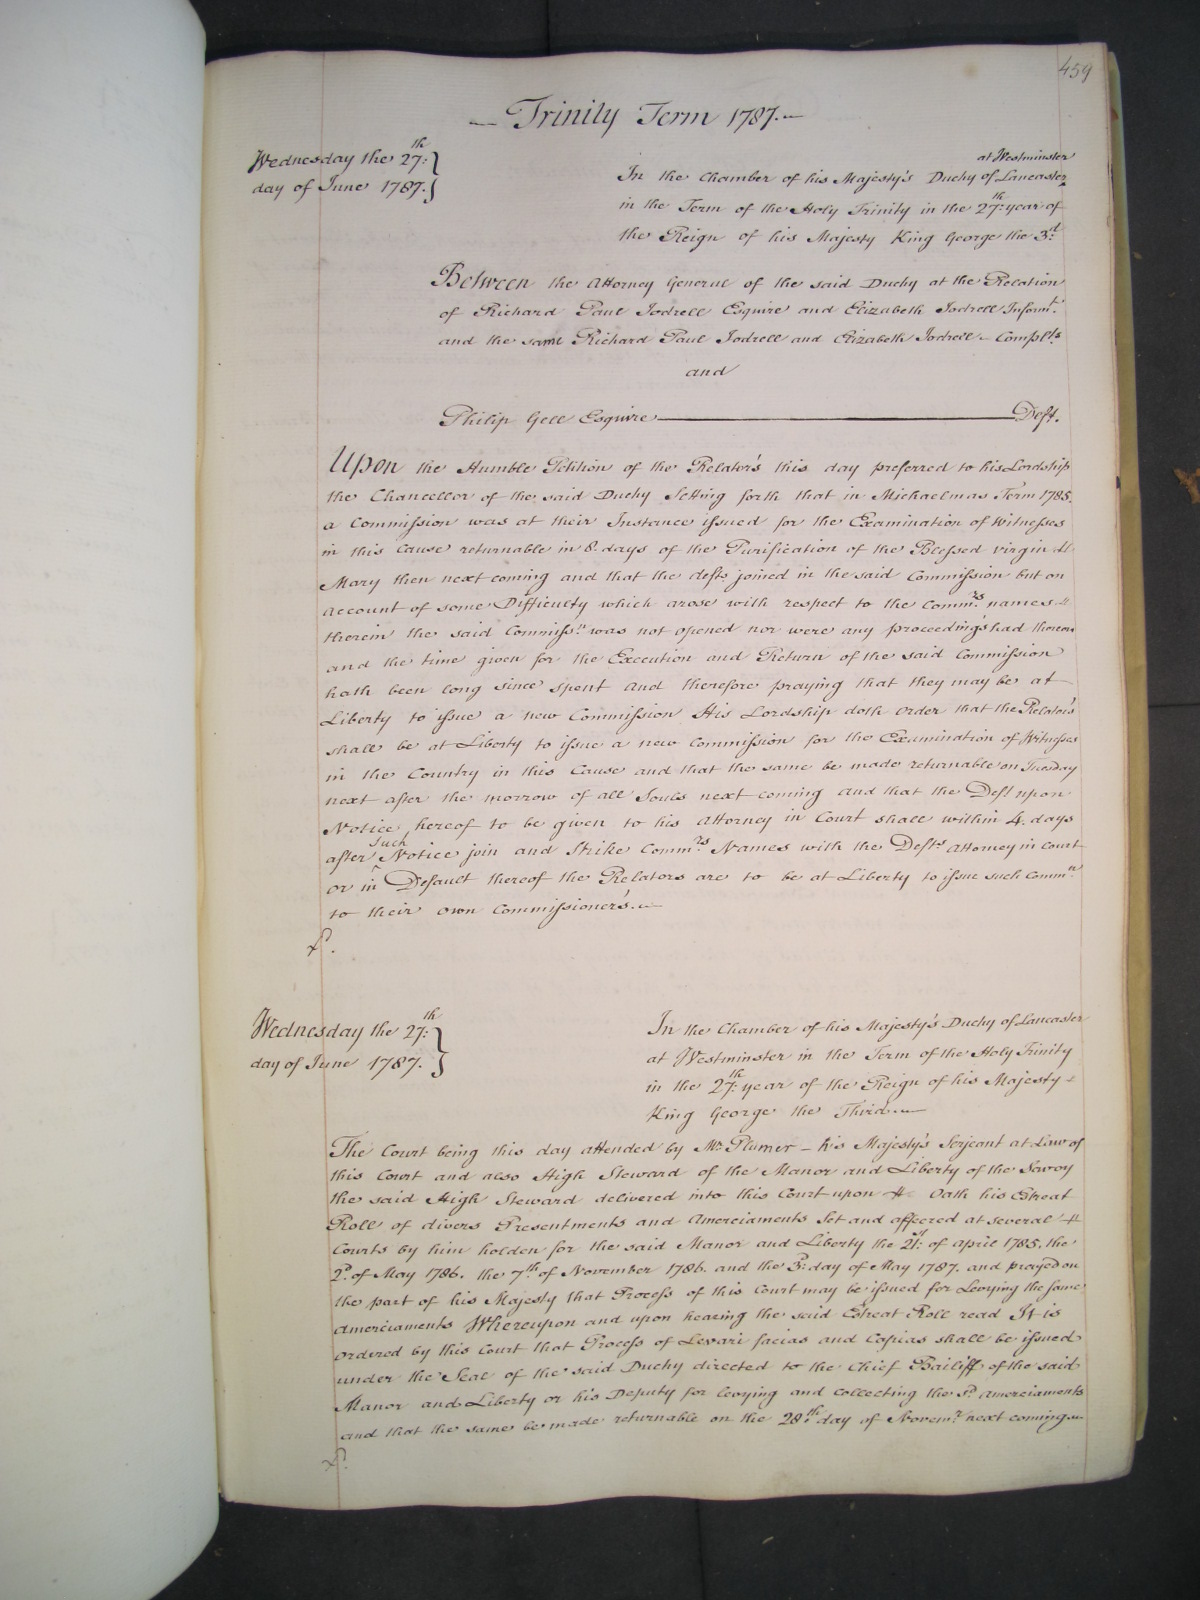 459
— Trinity Term 1787. —
Wednesday the 27:th
day of June 1787.
at Westminster
In the Chamber of his Majesty's Duchy of Lancaster
in the Term of the Holy Trinity in the 27:th year of
the Reign of his Majesty King George the 3:d
Between the Attorney General of the said Duchy at the Relation
of Richard Paul Jodrell Esquire and Elizabeth Jodrell Inform:t
and the same Richard Paul Jodrell and Elizabeth Jodrell - Compl:ts
and
Philip Gell Esquire — Deft.
Upon the Humble Petition of the Relator's this day preferred to his Lordship
the Chancellor of the said Duchy Setting forth that in Michaelmas Term 1785.
a Commission was at their Instance issued for the Examination of Witnesses
in this Cause returnable in 8. days of the Purification of the Blessed virgin
Mary then next coming and that the defts. joined in the said Commission but on
account of some Difficulty which arose with respect to the Comm:rs names
therein the said Commiss:n was not opened nor were any proceeding's had thereon
and the time given for the Execution and Return of the said Commission
hath been long since spent and therefore praying that they may be at
Liberty to issue a new Commission His Lordship doth order that the Relator's
shall be at Liberty to issue a new Commission for the Examination of Witnesses
in the Country in this Cause and that the same be made returnable on Tuesday
next after the morrow of all Souls next coming and that the Deft upon
Notice hereof to be given to his Attorney in Court shall within 4. days
after such Notice join and Strike Comm:rs Names with the Defts. Attorney in Court
or in Default thereof the Relators are to be at Liberty to issue such Comm:n
to their own Commissioner's. —
Wednesday the 27:th
day of June 1787.
In the Chamber of his Majesty's Duchy of Lancaster
at Westminster in the Term of the Holy Trinity
in the 27:th year of the Reign of his Majesty
King George the Third. —
The Court being this day attended by Mr. Plumer - his Majesty's Serjeant at Law of
this Court and also High Steward of the Manor and Liberty of the Savoy
the said High Steward delivered into this Court upon Oath his Estreat
Roll of divers Presentments and Amerciaments Set and affeered at several
Courts by him holden for the said Manor and Liberty the 21:st of April 1785. the
2:d of May 1786. the 7:th of November 1786. and the 3:d day of May 1787. and prayed on
the part of his Majesty that Process of this Court may be issued for Levying the same
Amerciaments Whereupon and upon hearing the said Estreat Roll read It is
Ordered by this Court that Process of Levari facias and Capias shall be issued
under the Seal of the said Duchy directed to the Chief Bailiff of the said
Manor and Liberty or his Deputy for levying and collecting the s:d Amerciaments
and that the same be made returnable on the 28:th day of Novem:r next coming —